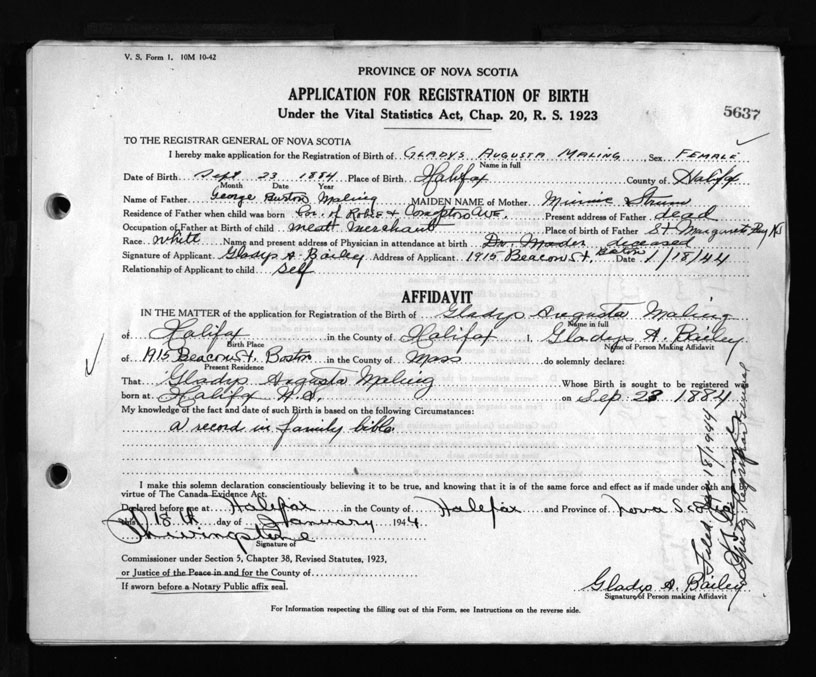 V. S. Form 1. 10M 10-42
PROVINCE OF NOVA SCOTIA
APPLICATION FOR REGISTRATION OF BIRTH
5637
Under the Vital Statistics Act, Chap. 20, R. S. 1923
TO THE REGISTRAR GENERAL OF NOVA SCOTIA
I hereby make application for the Registration of Birth of GLADYS AUGUSTA MALING Sex FEMALE
Name in full
Date of Birth Sept 23 1884 Place of Birth Halifax County of Halifax
Month Date Year
Name of Father George Burton Maling MAIDEN NAME of Mother Minnie Strum
Residence of Father when child was born Cor. of Robie & Compton Ave. Present address of Father dead
Occupation of Father at Birth of child meat merchant Place of birth of Father St Margarets Bay NS
Race White Name and present address of Physician in attendance at birth Dr. Mader deceased
Signature of Applicant Gladys A. Bailey Address of Applicant 1915 Beacon St. Boston Date 1/18/44
Relationship of Applicant to child self
AFFIDAVIT
IN THE MATTER of the application for Registration of the Birth of Gladys Augusta Maling
Name in full
of Halifax in the County of Halifax I, Gladys A. Bailey
Birth Place Name of Person Making Affidavit
of 1915 Beacon St. Boston in the County of Mass do solemnly declare:
Present Residence
That Gladys Augusta Maling Whose Birth is sought to be registered was
born at Halifax N.S. on Sep. 23 1884
My knowledge of the fact and date of such Birth is based on the following Circumstances:
a record in family bible.
I make this solemn declaration conscientiously believing it to be true, and knowing that it is of the same force and effect as if made under oath and
virtue of The Canada Evidence Act.
Declared before me at Halifax in the County of Halifax and Province of Nova Scotia
this 18th day of January 1944
Livingstone
Signature of
Commissioner under Section 5, Chapter 38, Revised Statutes, 1923,
or Justice of the Peace in and for the County of
If sworn before a Notary Public affix seal.
Gladys A. Bailey
Signature of Person making Affidavit
For Information respecting the filling out of this Form, see Instructions on the reverse side.
Filed Jan 18/1944
Deputy Registrar General